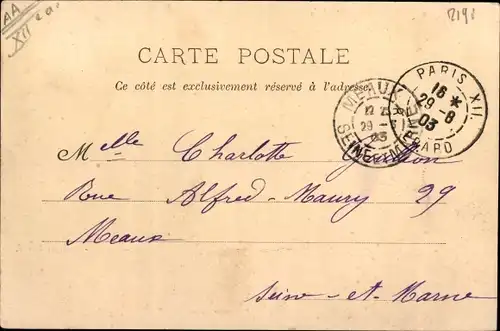 AA
XII
2191
CARTE POSTALE
Ce côté est exclusivement réservé à l'adresse.
PARIS XII
16 *
29-8
03
MEAUX
29-8
03
SEINE-ET-MARNE
Mlle Charlotte
Rue Alfred-Maury 29
Meaux
Seine-et-Marne